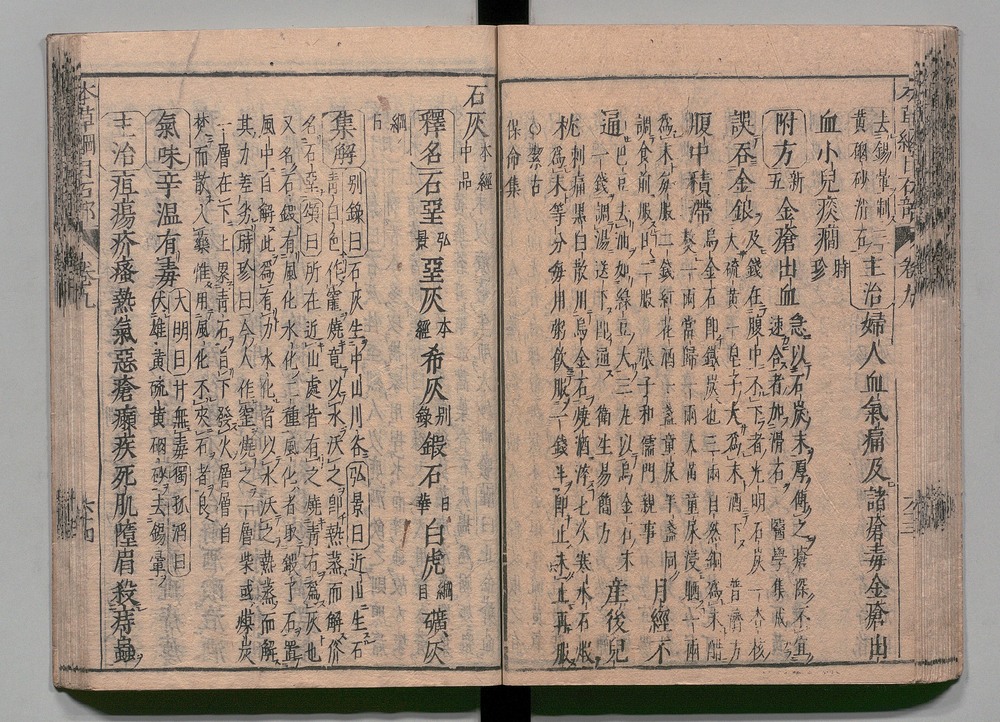 本草綱目石部 卷九 六十三
去錫暈制三
黃硇砂消石
主治婦人血氣痛及諸瘡毒金瘡出
血小兒痰癎時珍
附方新五金瘡出血急以石炭末厚傅之瘡深不宜
速合者加滑石醫學集成
誤吞金銀及錢在腹中不下者光明石炭一杏核
大硫黃一皂子大爲末酒下普濟方
腹中積滯烏金石即鐵炭也三兩自然銅爲末醋
熬一兩當歸一兩大黃童尿浸晒一兩
爲末每服二錢紅花酒十盞童尿半盞同
調食前服日二服張子和儒門親事
月經不
通巴豆去油如綠豆大三丸以烏金石末
一錢調湯送下即通衛生易簡方
產後兒
枕刺痛黑白散用烏金石燒酒淬七次寒水石煅
爲末等分每用粥飲服一錢半即止未止再服
○潔古
保命集
石灰本經中品
釋名石堊弘景堊灰本經希灰別錄鍛石日華白虎綱目礦灰
綱目
集解別錄曰石灰生中山川谷弘景曰近山生石
青白色作竈燒竟以水沃之即熱蒸而解俗
名石堊頌曰所在近山處皆有之燒青石爲灰也
又名石鍛有風化水化二種風化者取鍛了石置
風中自解此爲有力水化者以水沃之熱蒸而解
其力差劣時珍曰今人作窰燒之一層柴或煤炭
一層在下上累青石自下發火層層自
焚而散入藥惟用風化不夾石者良
氣味辛溫有毒大明曰甘無毒獨孤滔曰
伏雄黃硫黃硇砂去錫暈
主治疽瘍疥瘙熱氣惡瘡癩疾死肌墮眉殺痔蟲
本草綱目石部 卷九 六十四